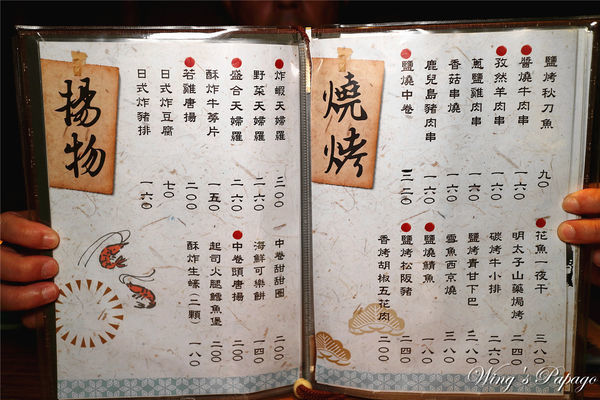 燒烤
鹽烤秋刀魚 九〇
醬燒牛肉串 一六〇
孜然羊肉串 一六〇
蔥鹽雞肉串 一六〇
香菇串燒 一六〇
鹿兒島豬肉串 一六〇
鹽燒中卷 三二〇
花魚一夜干 三八〇
明太子山藥焗烤
碳烤牛小排 二四〇
鹽烤青甘下巴 二八〇
雪魚西京燒 三八〇
鹽燒鯖魚 一八〇
鹽烤松阪豬 二四〇
香烤胡椒五花肉 二〇〇
揚物
炸蝦天婦羅 三〇〇
野菜天婦羅 一六〇
盛合天婦羅 二六〇
酥炸牛蒡片 一五〇
若雞唐揚 二〇〇
日式炸豆腐 七〇
日式炸豬排 一六〇
中卷甜甜圈 二〇〇
海鮮可樂餅 一四〇
中卷頭唐揚 二〇〇
起司火腿鱈魚堡 二〇〇
酥炸生蠔(二顆) 一八〇
Wing's Papago